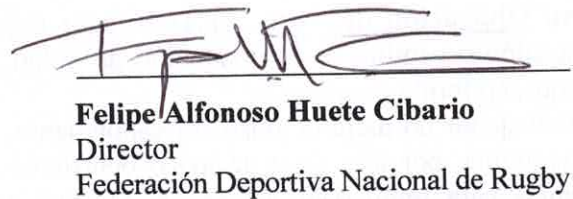 Felipe Alfonoso Huete Cibario
Director
Federación Deportiva Nacional de Rugby